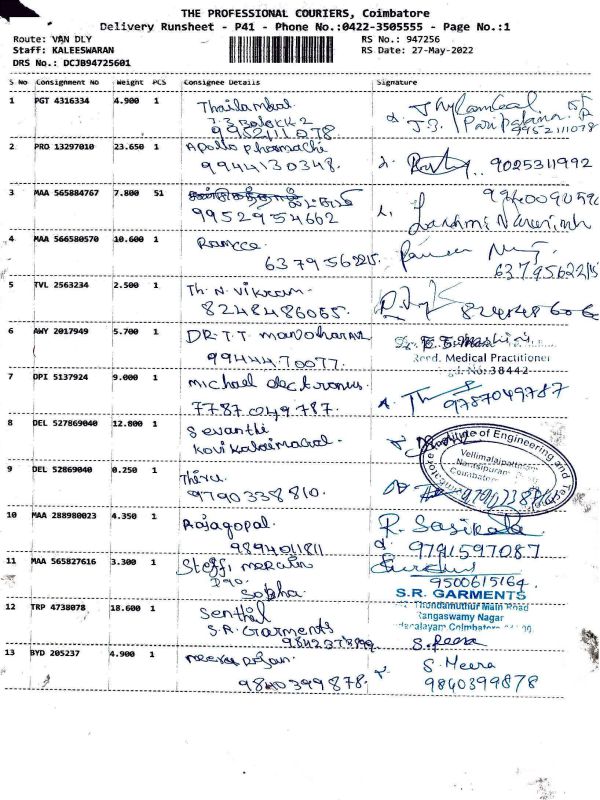 THE PROFESSIONAL COURIERS, Coimbatore
Delivery Runsheet - P41 - Phone No.:0422-3505555 - Page No.:1
Route: VAN DLY
RS No.: 947256
Staff: KALEESWARAN
RS Date: 27-May-2022
DRS No.: DCJB94725601
S No Consignment NO Weight PCS Consignee Details Signature
1 PGT 4316334 4.900 1 Thailambal
9952111078
9952111078
2 PRO 13297010 23.650 1 Apollo pharmachi
9944130348. 9025311992
3 MAA 565884767 7.800 51
9952954662 Lakshmi
4 MAA 566580570 10.600 1 Ramcca
6379562215. 6379562215
5 TVL 2563234 2.500 1 Th. N. Vikram.
8248486065
6 AWY 2017949 5.700 1 DR. T. T. manoharan
9944470077. Reed. Medical Practitioner
No: 38442
7 OPI 5137924 9.000 1 michael electronics.
7787049787. 9787049787
8 DEL 527869040 12.800 1 Sevanthi
Kovikalaimagal. Institute of Engineering and
Vellimalaipattanam
Narasipuram
Coimbatore
9 DEL 52869040 0.250 1 Thiru.
9790338810.
10 MAA 288980023 4.350 1 Rajagopal. R. Sasikala
9894011811 9791597087
11 MAA 565827616 3.300 1 Steffi merlin
Sobha. 9500615164.
S.R. GARMENTS
12 TRP 4738078 18.600 1 Senthil Thondamuthur Main Road
S.R. Garments Rangaswamy Nagar
Coimbatore
13 BYD 205237 4.900 1 S. Meera
9840399878. 9840399878